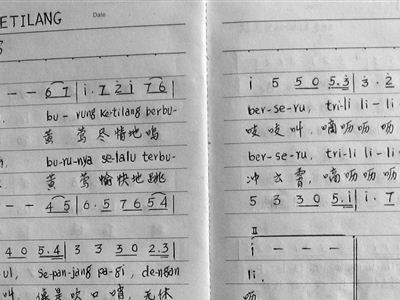 ETILANG
Date
- - 6 7 | i . 7 2 i 7 6 |
bu - rung ke-tilang berbu-
黄 莺 尽情地鸣
bu-ru-nya se-lalu terbu-
黄 莺愉快地跳
- - 4 5 | 6 . 5 7 6 5 4 |
4 0 5 . 4 | 3 3 3 0 2 . 3 |
ul, se-pan-jang pa-gi, de-ngan
叫, 像是吹口哨, 无休
i 5 5 0 5 . 3 | 3 . 2
ber-se-ru, tri-li li-li
吱吱叫, 嘀呖呖呖
ber-se-ru, tri-li li-li-
冲云霄, 嘀呖呖呖
5 3 3 0 5 . i | i . 7
II
i - - -
li.
呖